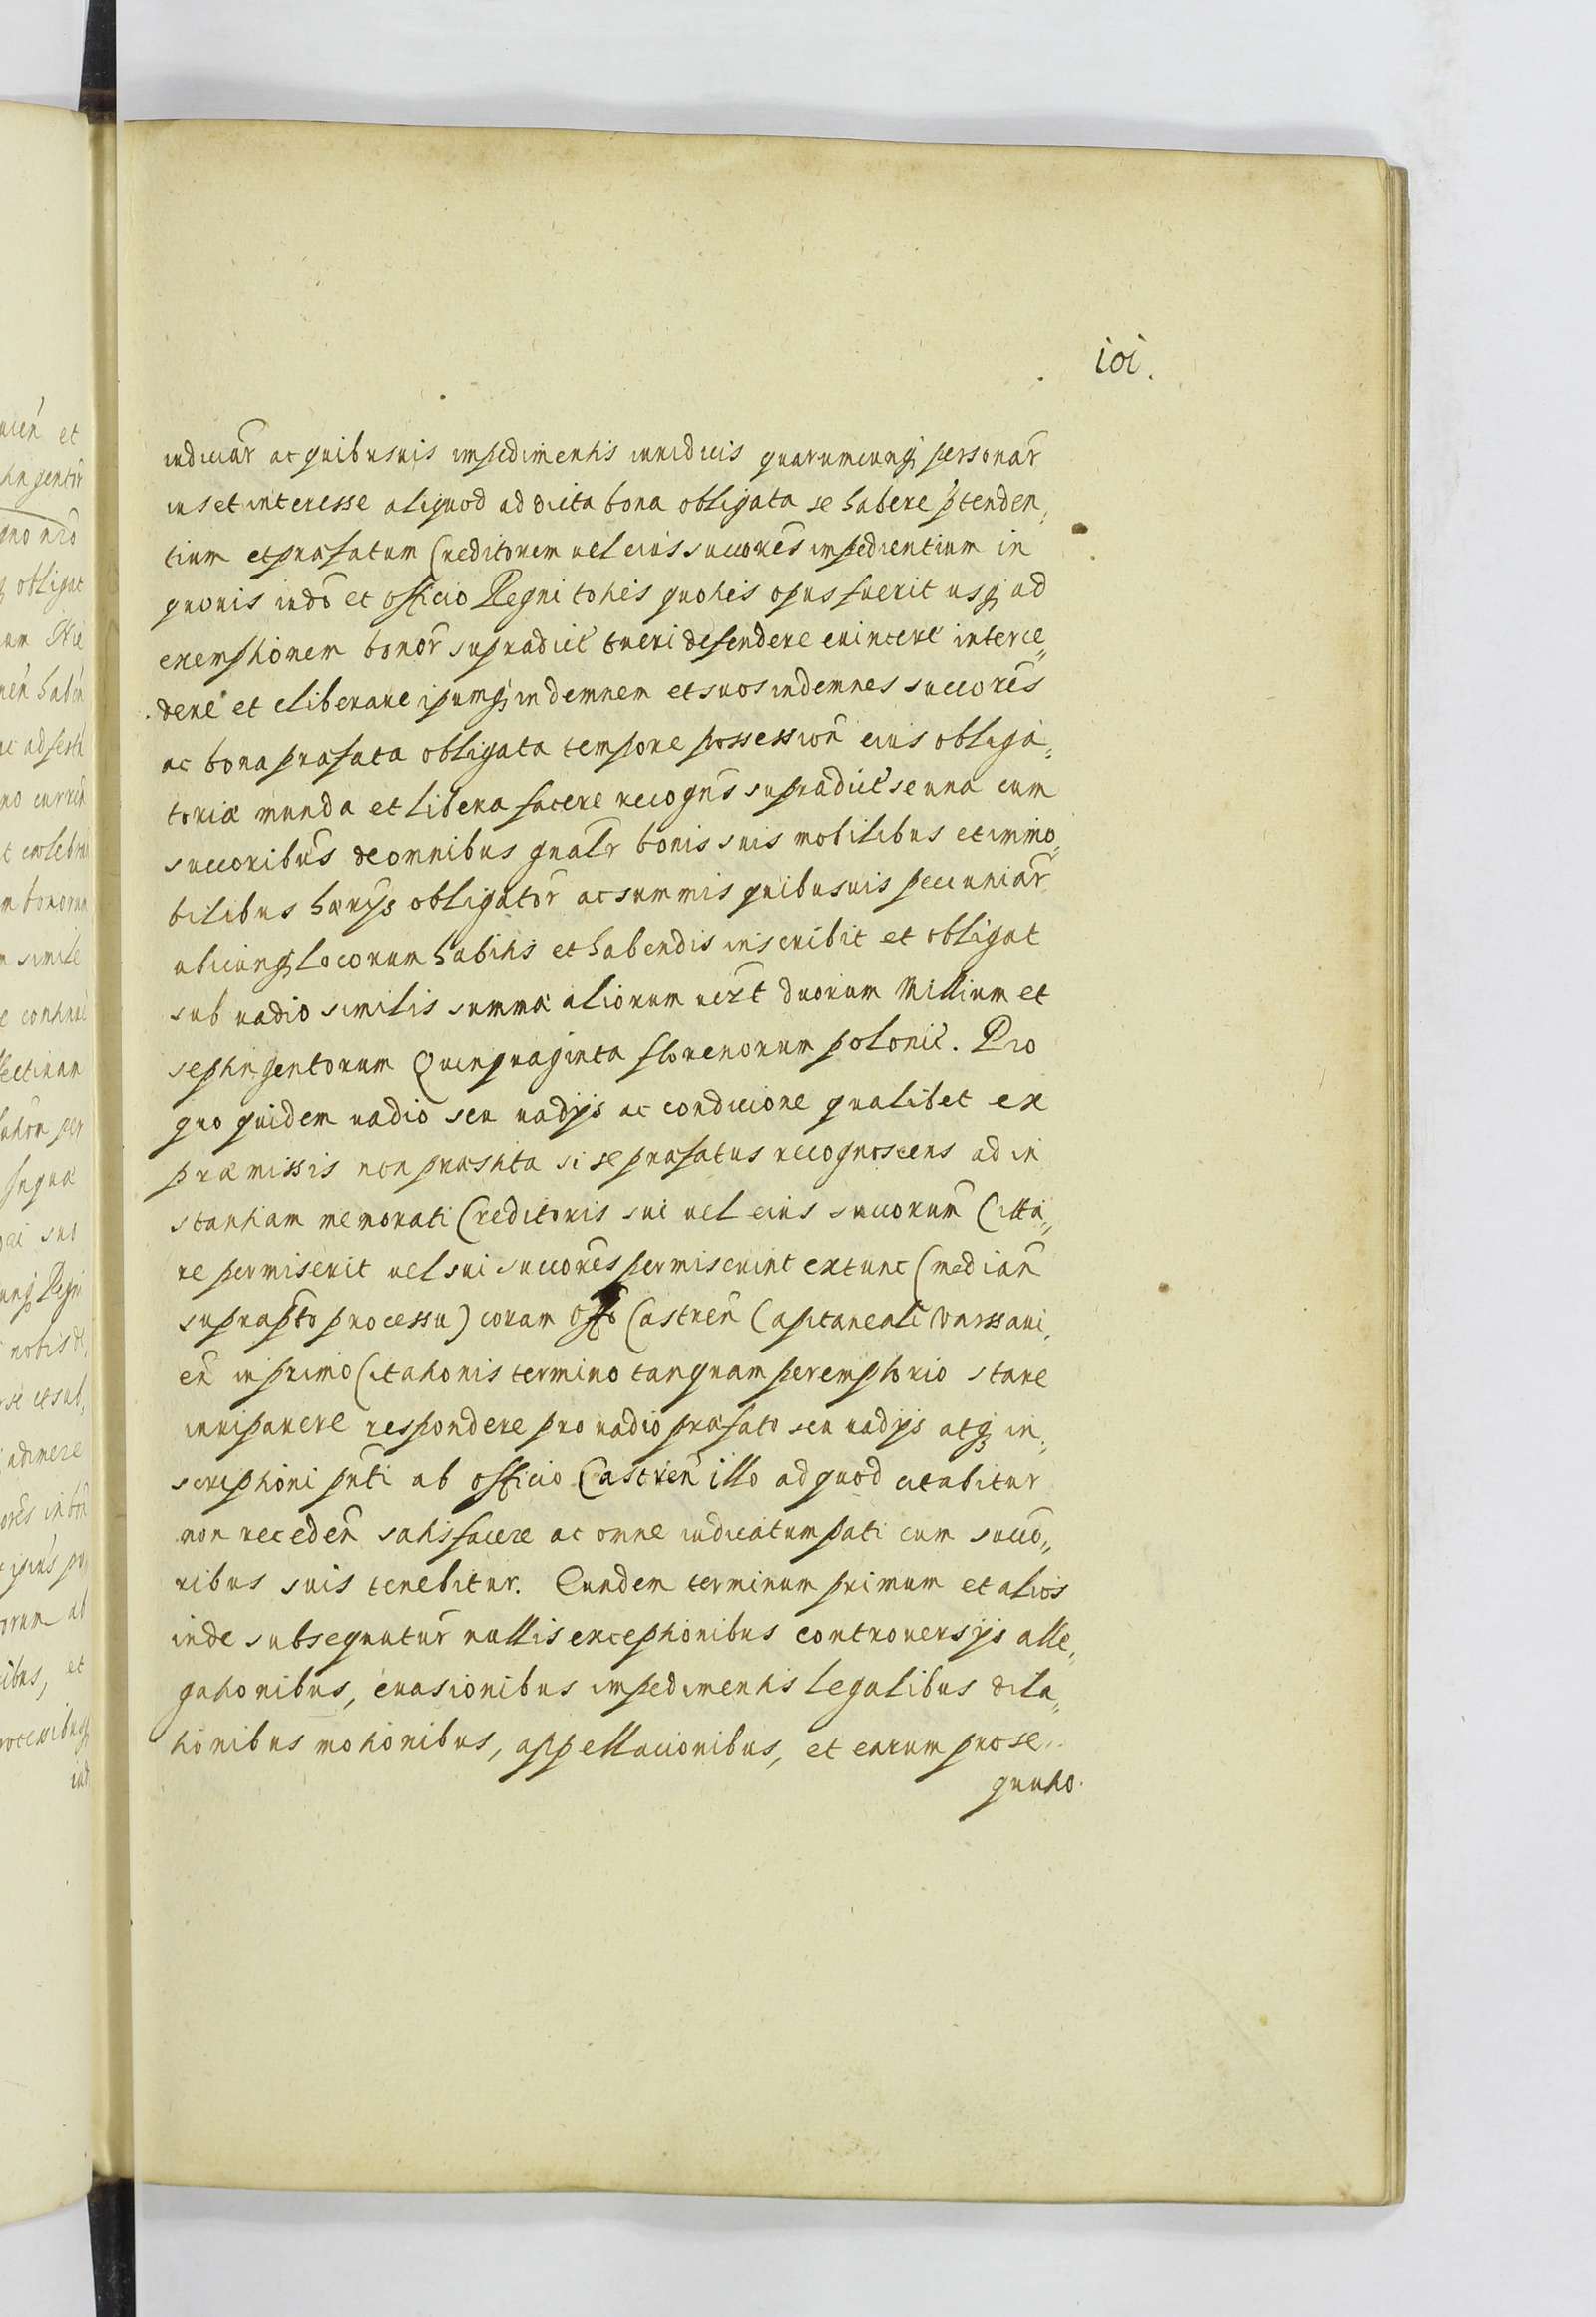 ioi.
iudiciar̃ ac quibusuis impedimentis iuridicis quarumcunq; personar̃
ius et interesse aliquod ad dicta bona obligata se habere p̃tenden,
tium et præfatum Creditorem uel eius succor̃es impedientium in
quouis iud̃o et officio Regni toties quoties opus fuerit usq; ad
exemptionem bonor̃ supradict̃ tueri defendere euincere interce„
dere et eliberare ipumq; indemnem et suos indemnes succores
ac bona præfata obligata tempore possession̄ eius obliga„
toriæ munda et libera facere recogn̄s supradict̃ se una cum
succoribus de omnibus gnalr̃ bonis suis mobilibus et immo„
bilibus hærijs obligator̃ ac summis quibusuis pecuniar̃
ubicunq; locorum habitis et habendis inscribit et obligat
sub uadio similis summæ aliorum uezt duorum Millium et
septingentorum Quinquaginta florenorum polonic̃. Pro
quo quidem uadio seu uadijs ac condicione qualibet ex
præmissis non præstita si se præfatus recognoscens ad in
stantiam memorati Creditoris sui uel eius succorum̃ Citta„
re permiserit uel sui succores permiserint extunc (median̄
suprap̃to processu) coram Off̃o Castren̄ Capitaneali Varssaui,
eñ in primo Citationis termino tanquam peremptorio stare
iuripavere respondere pro uadio præfato seu uadijs atq; in„
scriptioni p̃nti ab officio Castren̄ illo ad quod citabitur
non receden̄ satisfacere ac omne iudicatum pati cum succo„
ribus suis tenebitur. Eundem terminum primum et alios
inde subsequutur̃ nullis exceptionibus controuersijs alle„
gationibus, euasionibus impedimentis legalibus dila„
tionibus motionibus, appellacionibus, et earum prose„
quutio.